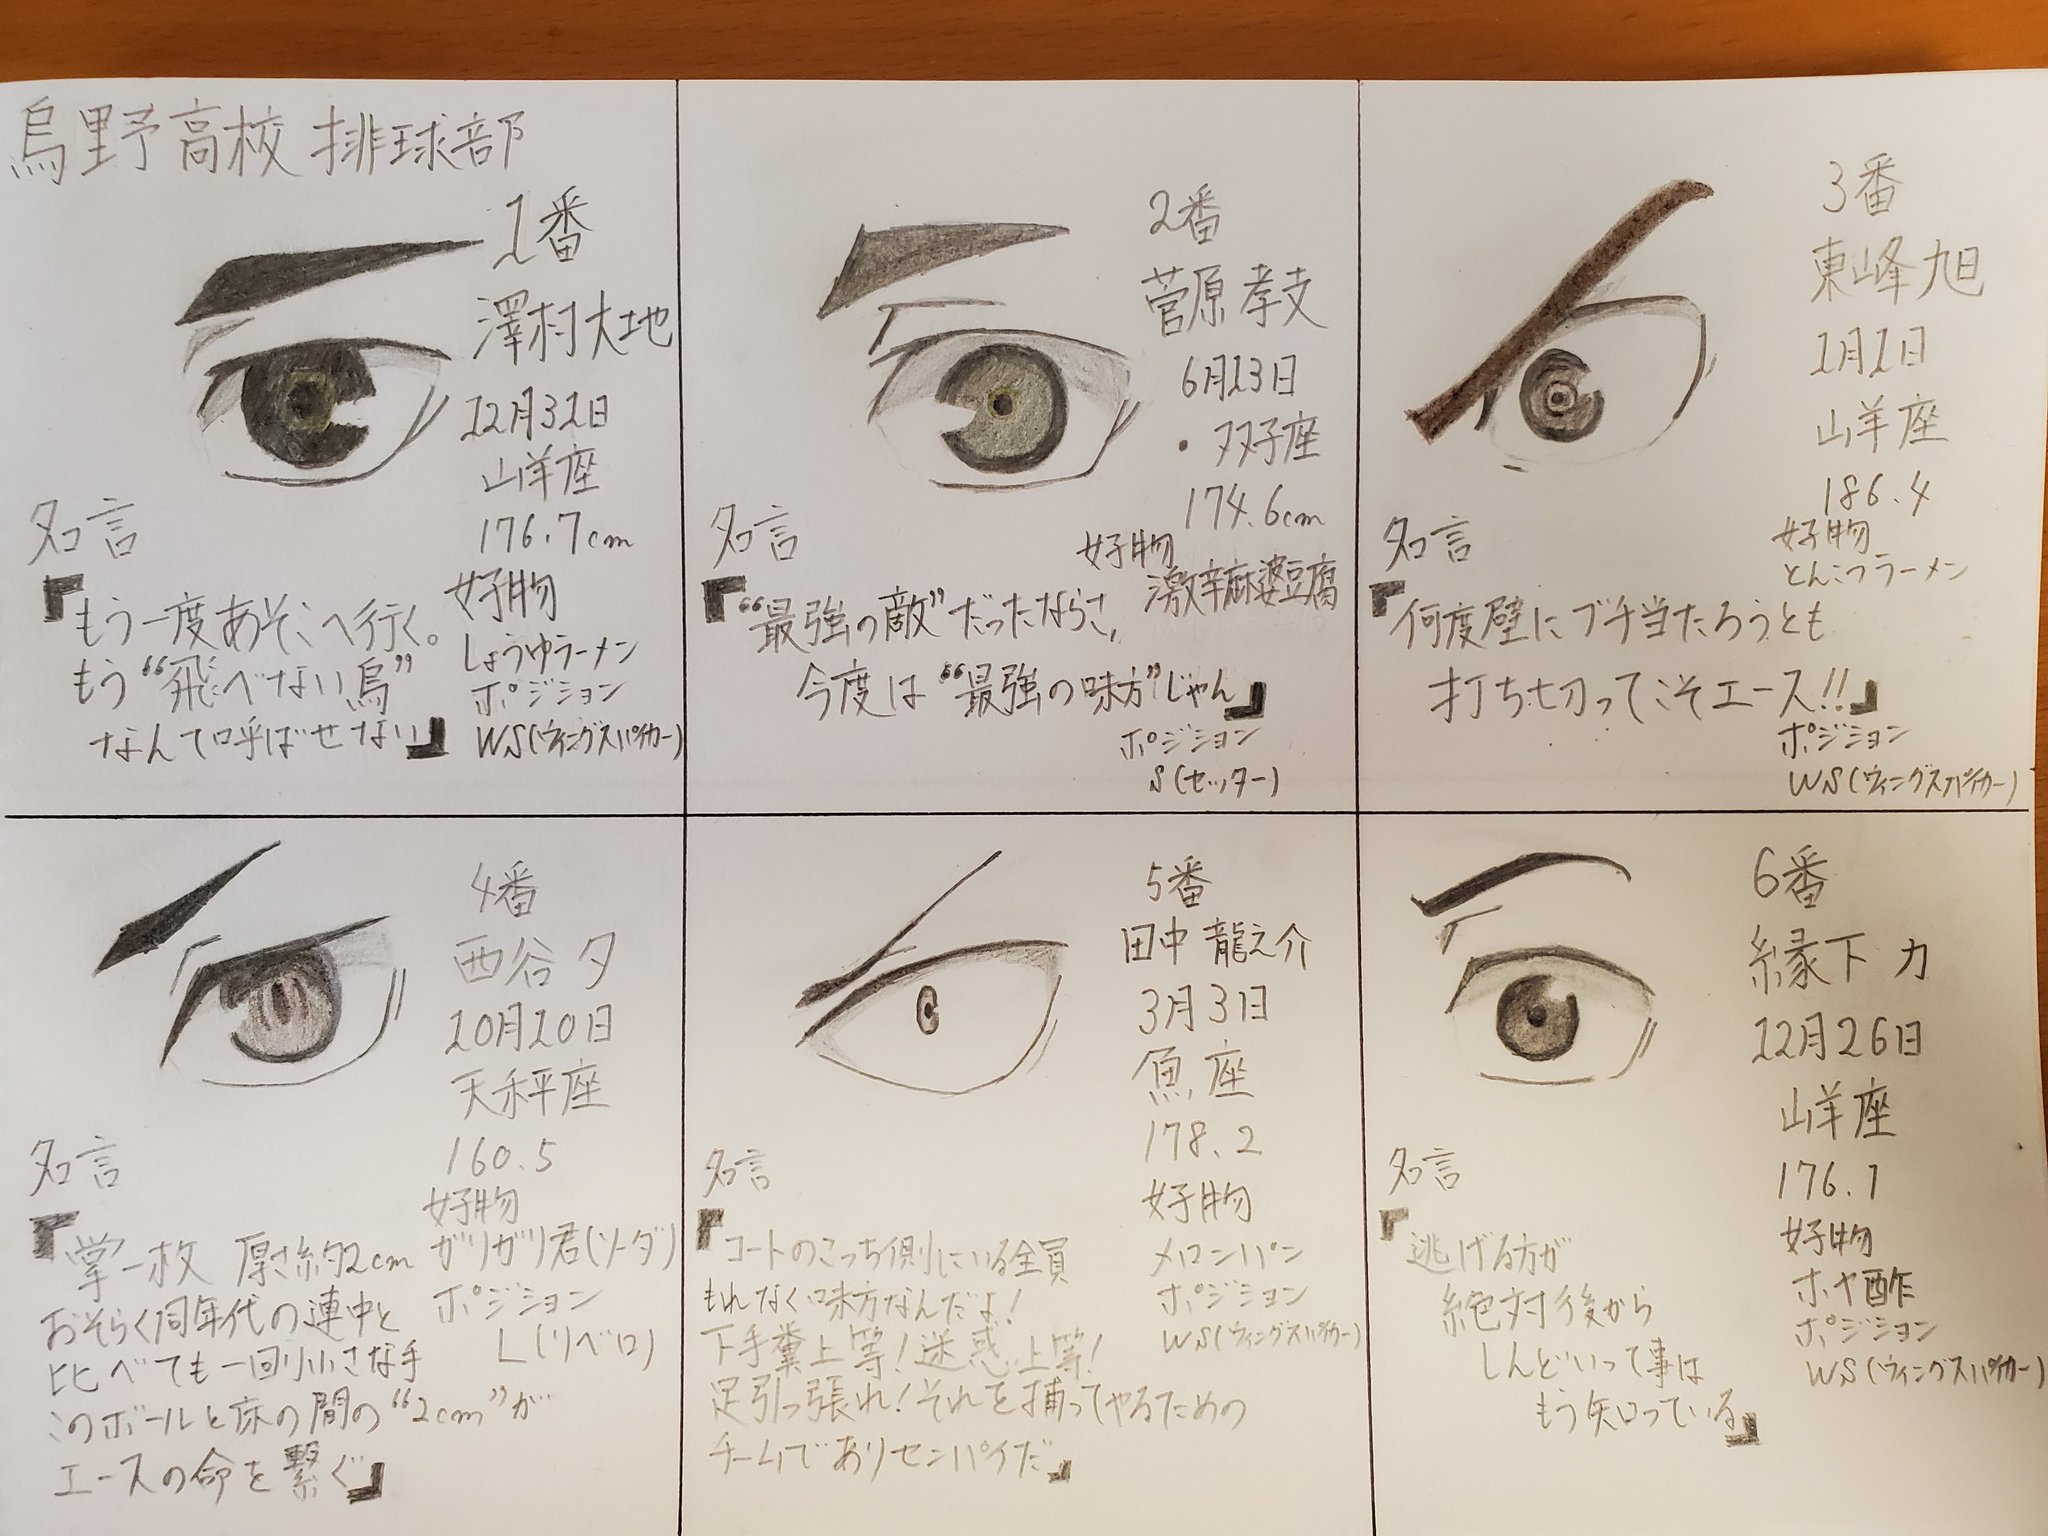 烏野高校 排球部
1番
澤村大地
12月31日
山羊座
176.7cm
好物
しょうゆラーメン
ポジション
WS(ウィングスパイカー)
名言
『もう一度あそこへ行く。
もう“飛べない烏”
なんて呼ばせない』
2番
菅原孝支
6月13日
・双子座
174.6cm
好物
激辛麻婆豆腐
名言
『“最強の敵”だったならさ,
今度は“最強の味方”じゃん』
ポジション
S(セッター)
3番
東峰旭
1月1日
山羊座
186.4
好物
とんこつラーメン
名言
『何度壁にブチ当たろうとも
打ち切ってこそエース!!』
ポジション
WS(ウィングスパイカー)
4番
西谷 夕
10月10日
天秤座
160.5
好物
ガリガリ君(ソーダ)
ポジション
L(リベロ)
名言
『掌一枚 厚さ約2cm
おそらく同年代の連中と
比べても一回り小さな手
このボールと床の間の“2cm”が
エースの命を繋ぐ』
5番
田中 龍之介
3月3日
魚座
178.2
好物
メロンパン
ポジション
WS(ウィングスパイカー)
名言
『コートのこっち側にいる全員
もれなく味方なんだよ!
下手糞上等!迷惑上等!
足引っ張れ!それを補ってやるための
チームでありセンパイだ』
6番
縁下 力
12月26日
山羊座
176.1
好物
ホヤ酢
ポジション
WS(ウィングスパイカー)
名言
『逃げる方が
絶対後から
しんどいって事は
もう知っている』